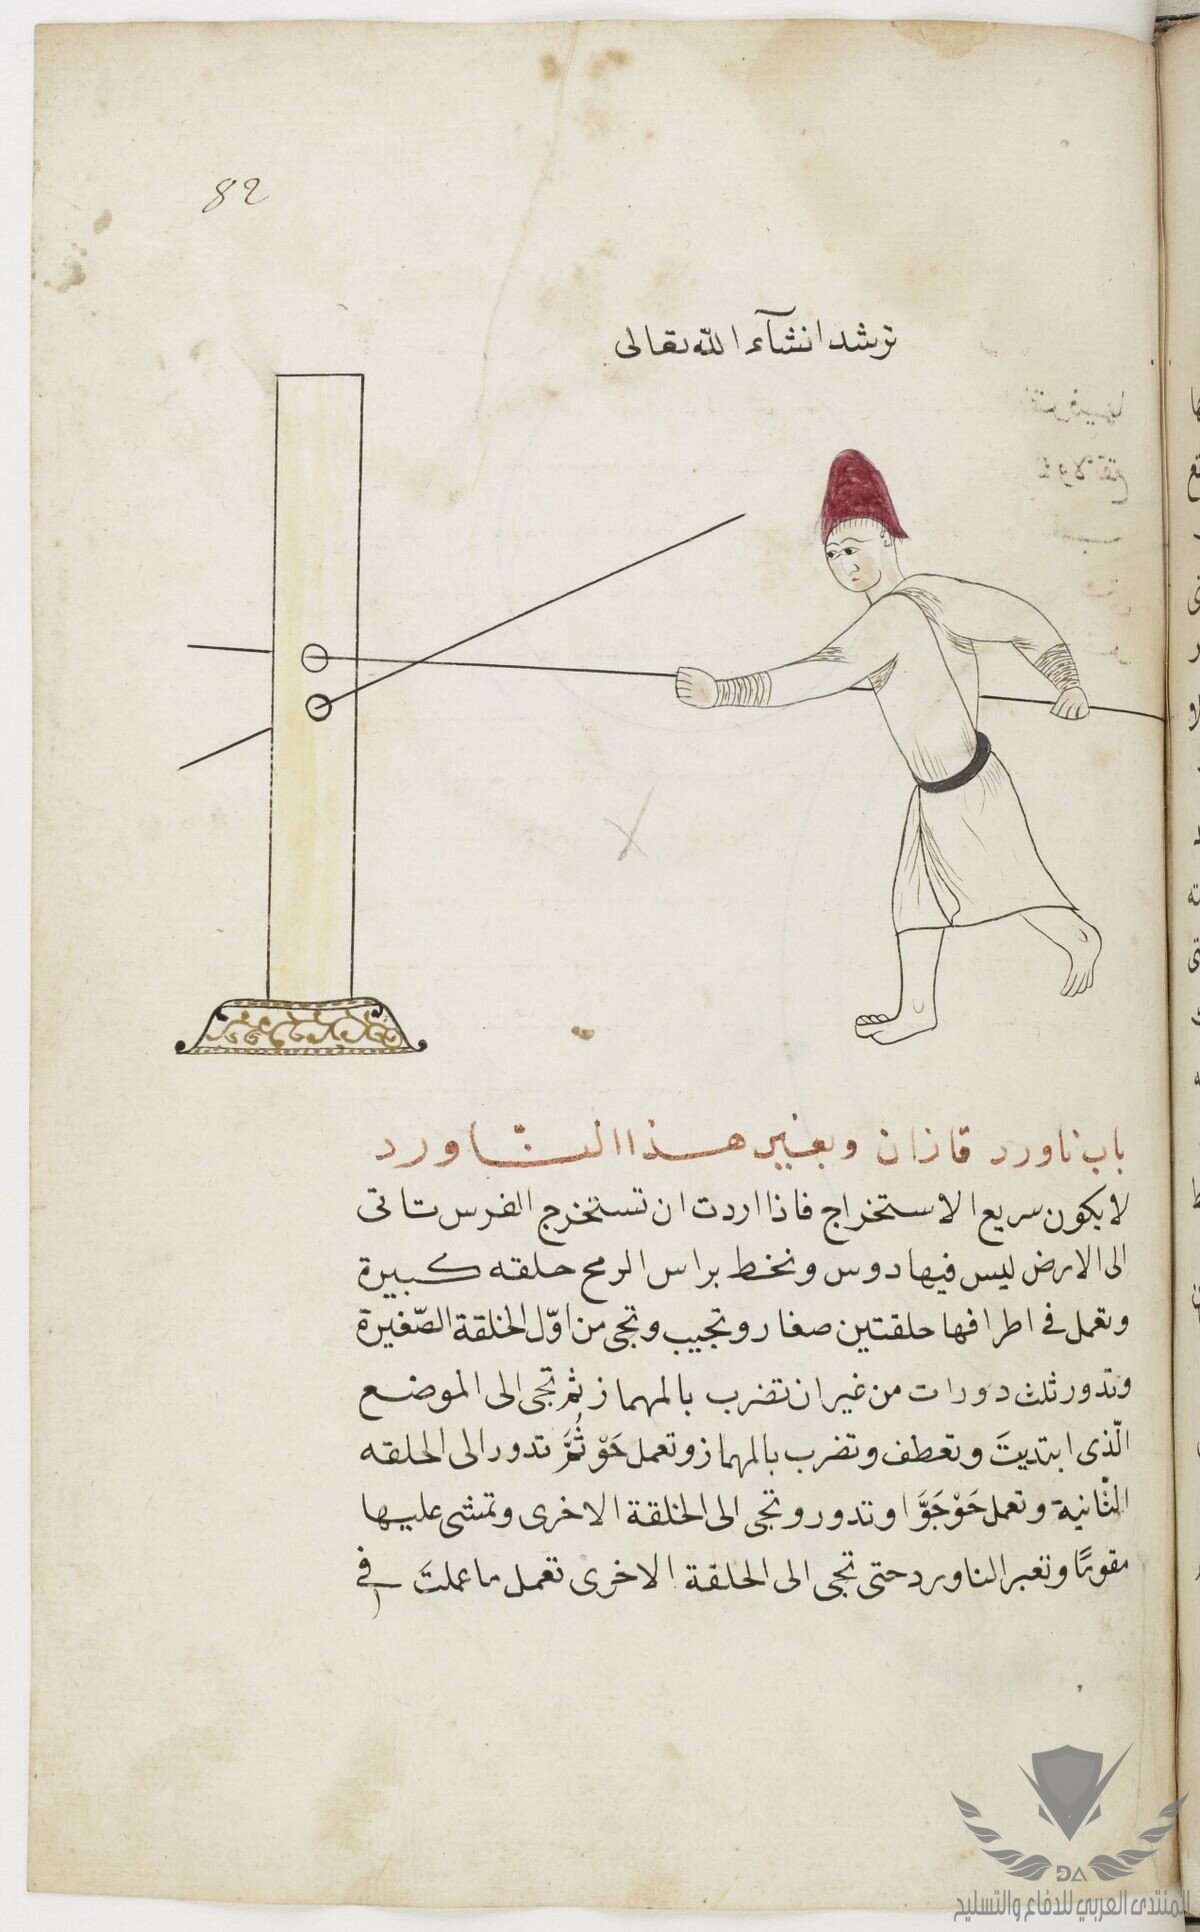 82
ترشد انشآء الله تعالى
باب ناورد قازان وبغير هذا الناورد
لا يكون سريع الاستخراج فاذا اردت ان تستخرج الفرس تاتى
الى الارض ليس فيها دوس ونخط براس الرمح حلقه كبيرة
وتعمل فى اطرافها حلقتين صغار وتجيب وتجى من اوّل الحلقة الصّغيرة
وتدور ثلث دورات من غير ان تضرب بالمهماز ثم تجى الى الموضع
الّذى ابتديتَ وتعطف وتضرب بالمهماز وتعمل حَوْ ثُمَّ تدور الى الحلقه
الثّانية وتعمل حَوْ جَوَّا وتدور وتجى الى الحلقة الاخرى وتمشى عليها
مقورًا وتعبر الناورد حتى تجى الى الحلقة الاخرى تعمل ما عملتَ فى
DA
المنتدى العربي للدفاع والتسليح